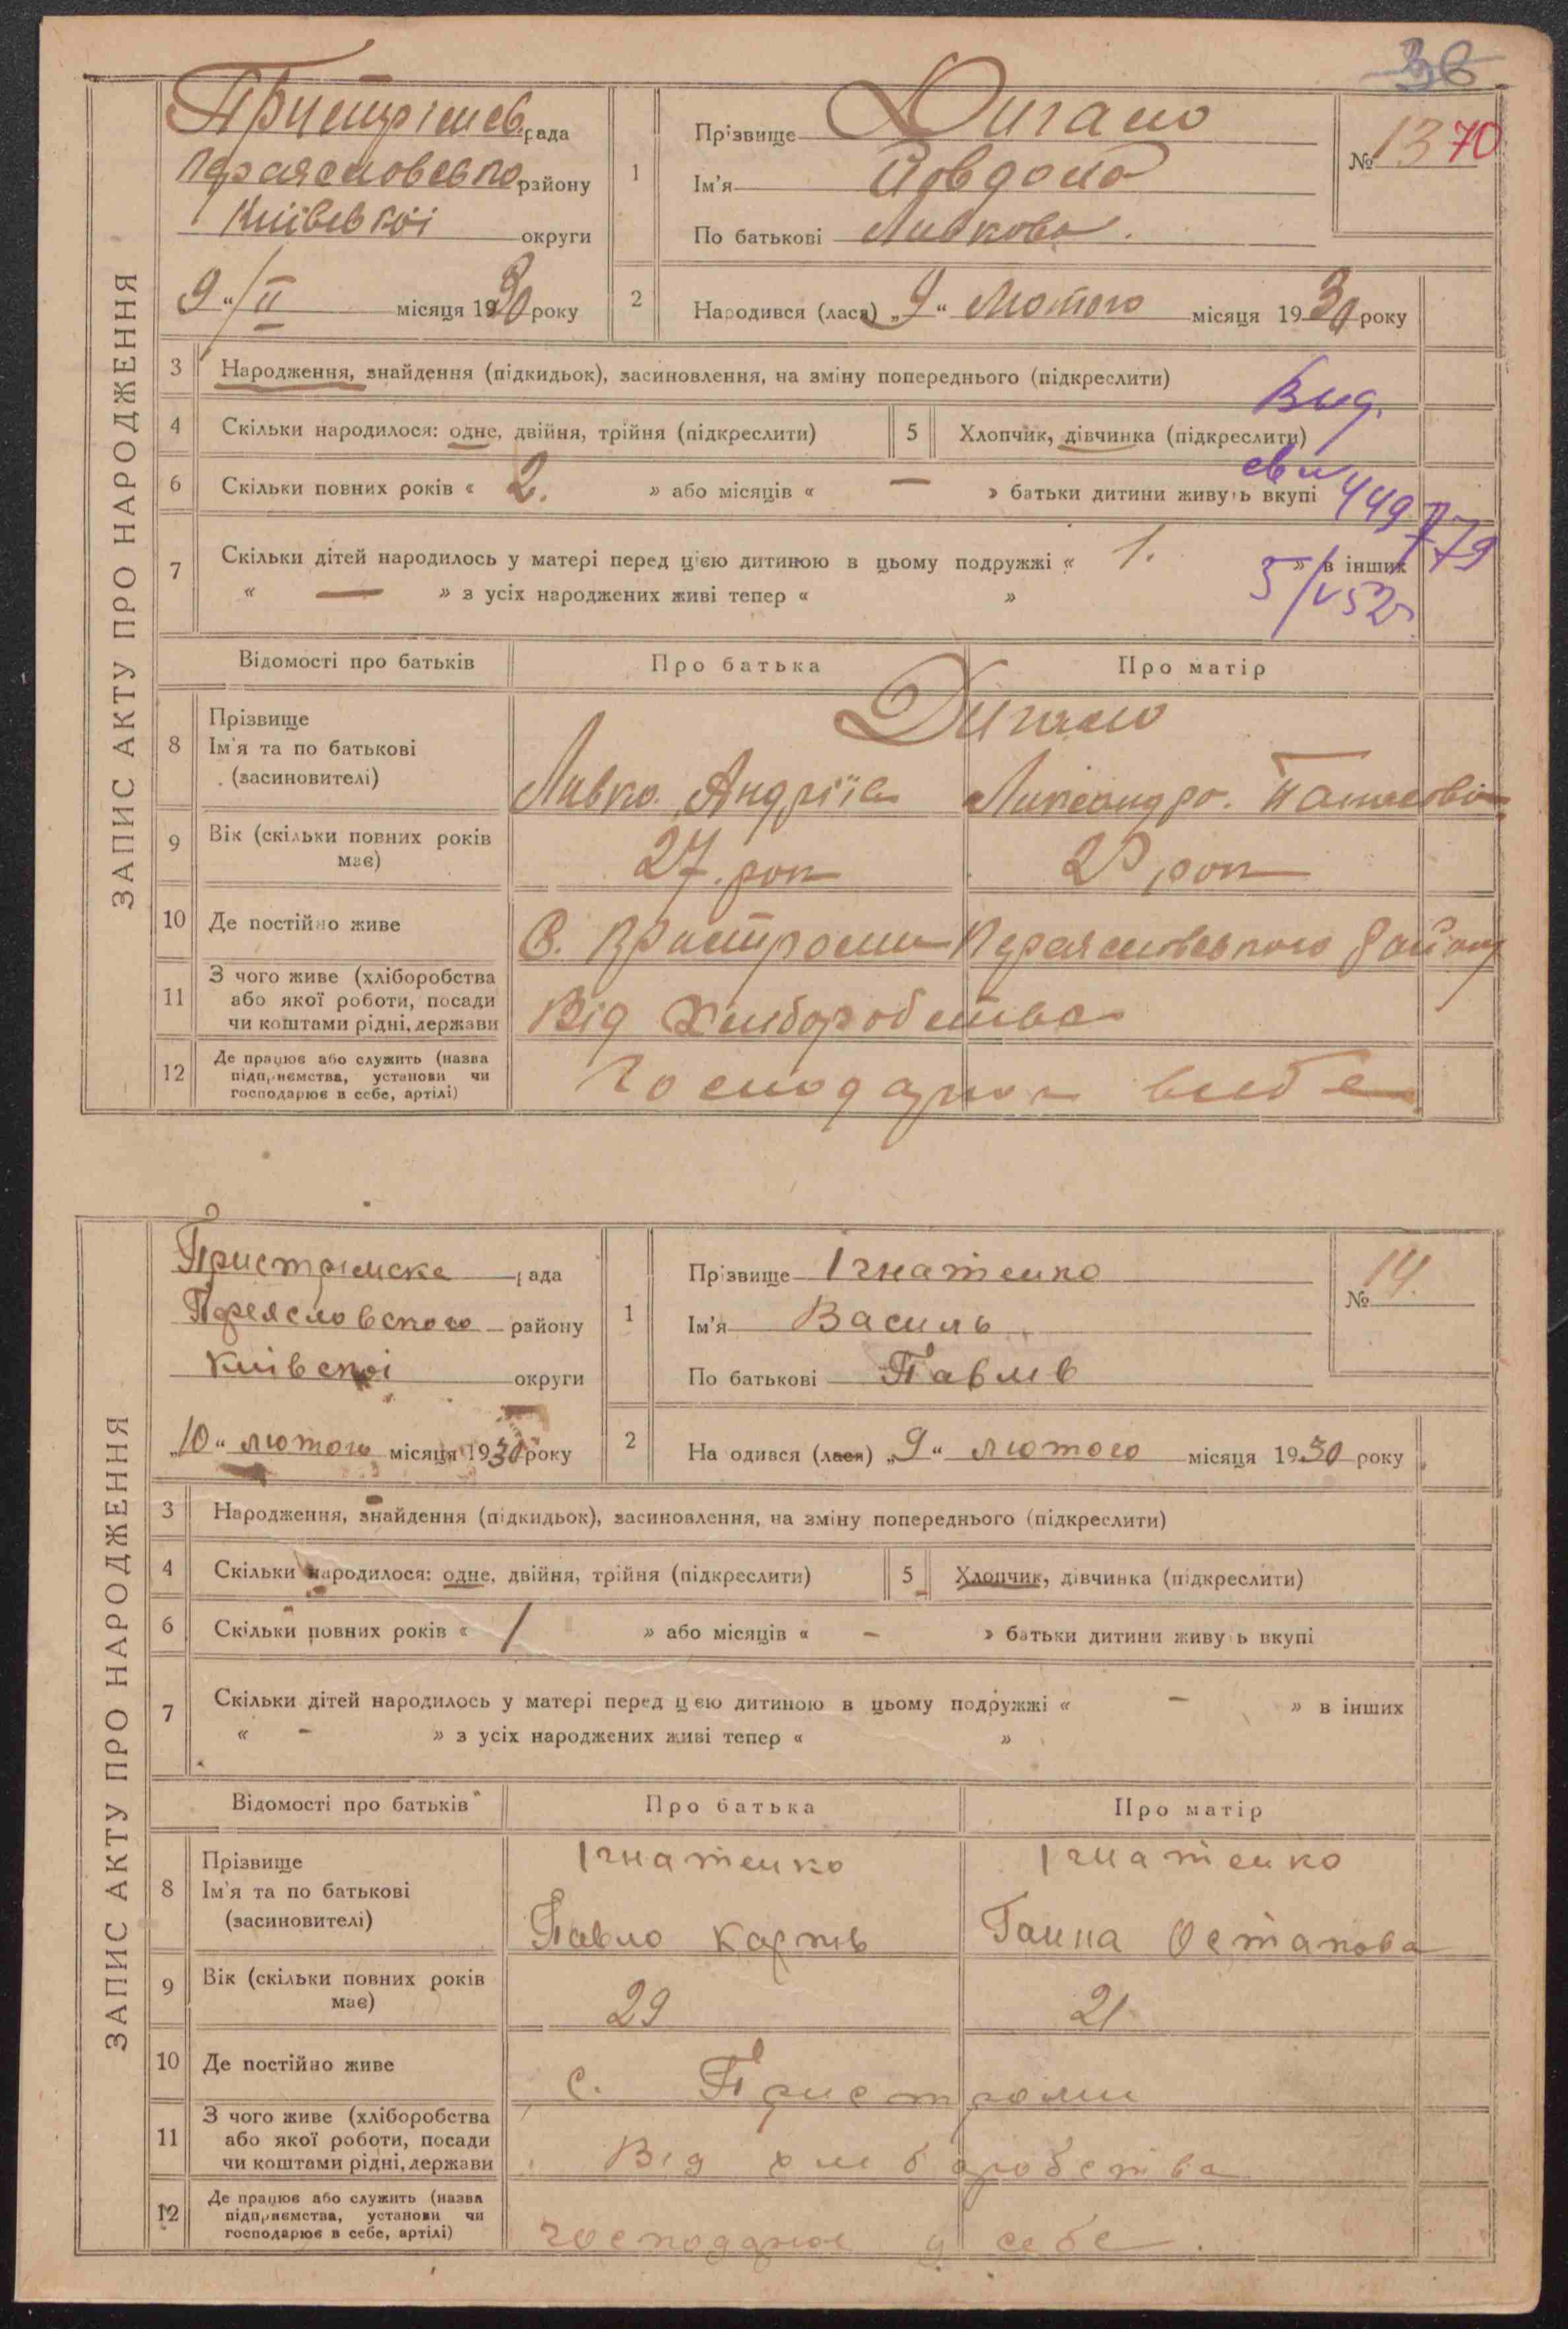 36
ЗАПИС АКТУ ПРО НАРОДЖЕННЯ
Пристрімсь рада
району
Київської округи
9 "/II місяця 1930 року
1 Прізвище Дигало
Ім'я Йовдоха
По батькові Ливкова.
№ 13 70
2 Народився (лася) „9" Лютого місяця 1930 року
3 Народження, знайдення (підкидьок), засиновлення, на зміну попереднього (підкреслити)
Вид.
4 Скільки народилося: одне, двійня, трійня (підкреслити) 5 Хлопчик, дівчинка (підкреслити)
6 Скільки повних років « 2. » або місяців « — » батьки дитини живуть вкупі
7 Скільки дітей народилось у матері перед цією дитиною в цьому подружжі « 1. » в інших
« — » з усіх народжених живі тепер « »
5/V 52
Відомості про батьків Про батька Про матір
8 Прізвище
Ім'я та по батькові
(засиновителі)
Дигало
Ливко Андріїв
9 Вік (скільки повних років
має)
27. рок
10 Де постійно живе
С. Пристроми Переяславського району
11 З чого живе (хліборобства
або якої роботи, посади
чи коштами рідні, держави
Від Хліборобства
12 Де працює або служить (назва
підприємства, установи чи
господарює в себе, артілі)
Господарює всебе
ЗАПИС АКТУ ПРО НАРОДЖЕННЯ
Пристрімска рада
Переясловского району
Київскої округи
„10" лютого місяця 1930 року
1 Прізвище Ігнатенко
Ім'я Василь
По батькові Павлів
№ 14.
2 Народився (лася) „9" лютого місяця 1930 року
3 Народження, знайдення (підкидьок), засиновлення, на зміну попереднього (підкреслити)
4 Скільки народилося: одне, двійня, трійня (підкреслити) 5 Хлопчик, дівчинка (підкреслити)
6 Скільки повних років « 1 » або місяців « - » батьки дитини живуть вкупі
7 Скільки дітей народилось у матері перед цією дитиною в цьому подружжі « - » в інших
« - » з усіх народжених живі тепер « »
Відомості про батьків Про батька Про матір
8 Прізвище
Ім'я та по батькові
(засиновителі)
Ігнатенко Ігнатенко
Павло Карпів Ганна Остапова
9 Вік (скільки повних років
має)
29 21
10 Де постійно живе
с. Пристроми
11 З чого живе (хліборобства
або якої роботи, посади
чи коштами рідні, держави
Від хліборобства
12 Де працює або служить (назва
підприємства, установи чи
господарює в себе, артілі)
господарює у себе.